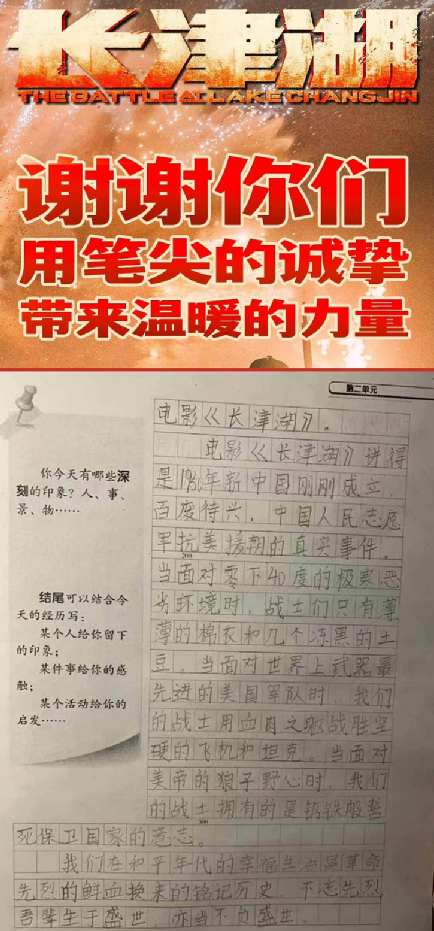 长津湖
THE BATTLE AT LAKE CHANGJIN
谢谢你们
用笔尖的诚挚
带来温暖的力量
第二单元
你今天有哪些深
刻的印象？人、事、
景、物……
结尾可以结合今
天的经历写：
某个人给你留下
的印象；
某件事给你的感
触；
某个活动给你的
启发……
电影《长津湖》。
电影《长津湖》讲得
是1950年新中国刚刚成立，
百废待兴，中国人民志愿
军抗美援朝的真实事件。
200
当面对零下40度的极寒恶
劣环境时，战士们只有薄
薄的棉衣和几个冻黑的土
豆，当面对世界上武器最
先进的美国军队时，我们
的战士用血肉之躯战胜坚
硬的飞机和坦克。当面对
美帝的狼子野心时，我们
的战士拥有的是钢铁般誓
300
死保卫国家的意志。
我们在和平年代的幸福生活是革命
先烈的鲜血换来的铭记历史，不忘先烈
吾辈生于盛世，亦当不负盛世。